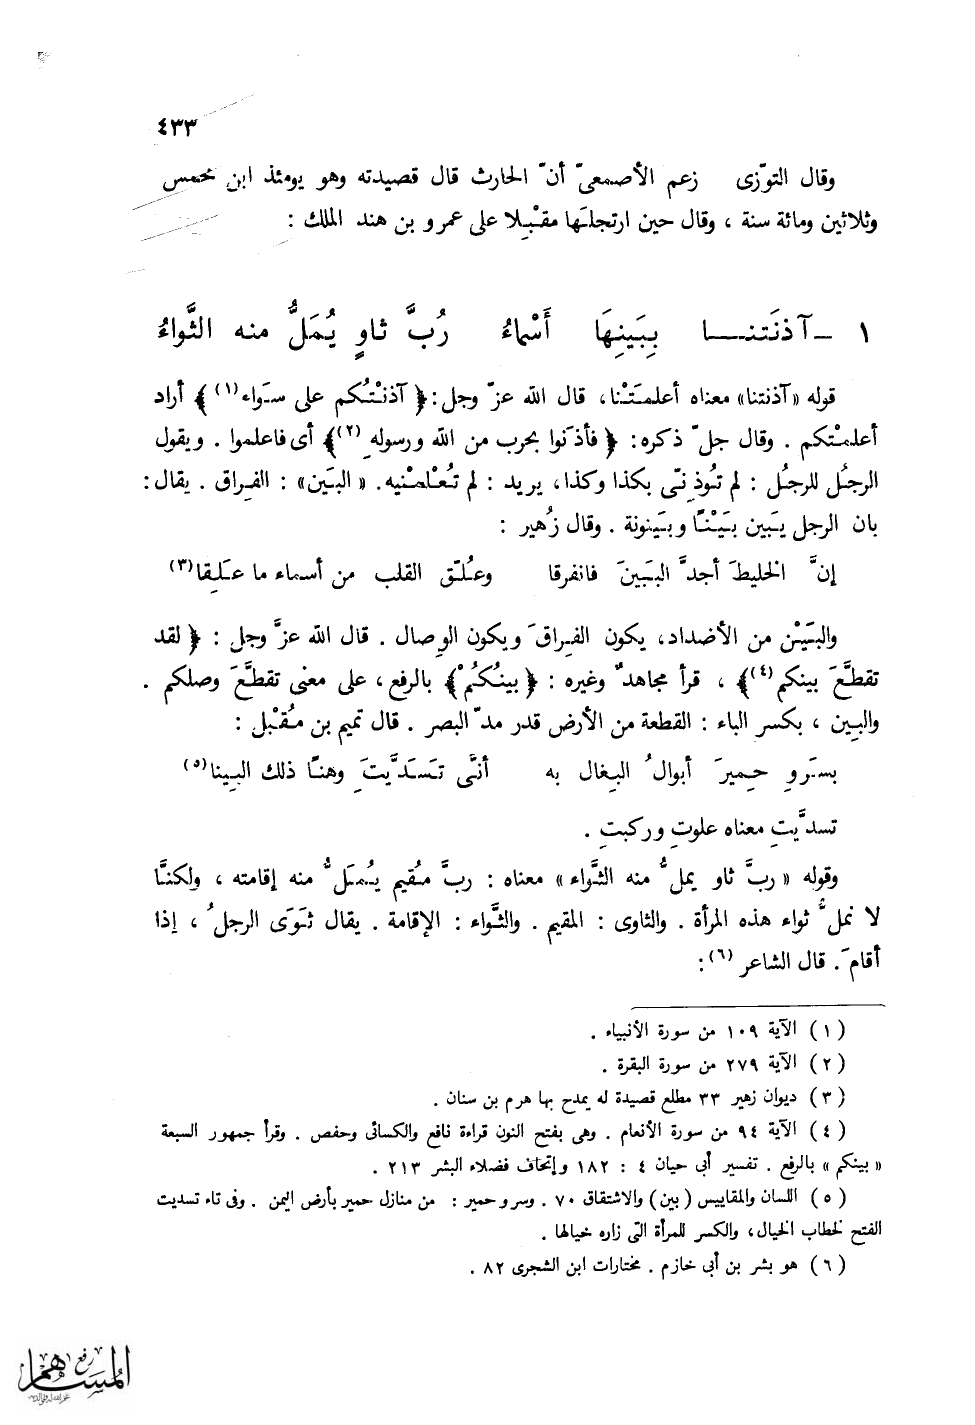 ٤٣٣
وقال التوّزى زعم الأصمعىّ أنّ الحارث قال قصيدته وهو يومئذ ابن خمس
وثلاثين ومائة سنة ، وقال حين ارتجلَها مقْبِلا على عمرو بن هند الملك :
١ – آذنَتنــا بِبَينِهَا أَسْماءُ رُبَّ ثاوٍ يُمَلُّ منه الثَّواءُ
قوله «آذنتنا» معناه أعلمتَنْا، قال الله عزّ وجل: ﴿ آذنْتُكم على سَواء(١)﴾ أراد
أعلمْتكم . وقال جلّ ذكره: ﴿ فأذَنوا بحرب من الله ورسولهِ (٢)﴾ أى فاعلموا . ويقول
الرجُل للرجُل : لم تُوذِنىّ بكذا وكذا، يريد : لم تُعْلمْنيه. « البَين» : الفِراق . يقال:
بان الرجل يَبين بَيْنًا وبَينونة . وقال زُهير :
إنَّ الخليطَ أجدَّ البَينَ فانفرقا وعُلّق القلب من أسماء ما عَلِقا(٣)
والبَيْن من الأضداد، يكون الفِراقَ ويكون الوِصال . قال الله عزَّ وجل : ﴿ لقد
تقطَّعَ بينكم(٤)﴾ ، قرأ مجاهدٌ وغيره : ﴿ بينُكُمْ﴾ بالرفع، على معنى تقطَّعَ وصلكم .
والبِين ، بكسر الباء : القطعة من الأرض قدر مدّ البصر . قال تميم بن مُقْبل :
بسَروِ حِميرَ أبوالُ البِغال به أنَّى تَسَدَّيتَِ وهنًا ذلك البِينا(٥)
تسدَّيتِ معناه علوتِ وركبتِ .
وقوله « ربَّ ثاو يملُّ منه الثَّواء» معناه : ربَّ مُقيم يُمَلُّ منه إقامته ، ولكنَّا
لا نملُّ ثواء هذه المرأة . والثاوى : المقيم . والثَّواء : الإقامة . يقال ثَوَى الرجلُ ، إذا
أقامَ. قال الشاعر (٦):
(١) الآية ١٠٩ من سورة الأنبياء .
(٢) الآية ٢٧٩ من سورة البقرة .
(٣) ديوان زهير ٣٣ مطلع قصيدة له يمدح بها هرم بن سنان .
(٤) الآية ٩٤ من سورة الأنعام . وهى بفتح النون قراءة نافع والكسائى وحفص . وقرأ جمهور السبعة
« بينكم » بالرفع . تفسير أبى حيان ٤ : ١٨٢ وإتحاف فضلاء البشر ٢١٣ .
(٥) اللسان والمقاييس (بين) والاشتقاق ٧٠ . وسرو حمير : من منازل حمير بأرض اليمن . وفى تاء تسديت
الفتح لخطاب الخيال، والكسر للمرأة التى زاره خيالها .
(٦) هو بشر بن أبى خازم . مختارات ابن الشجرى ٨٢ .